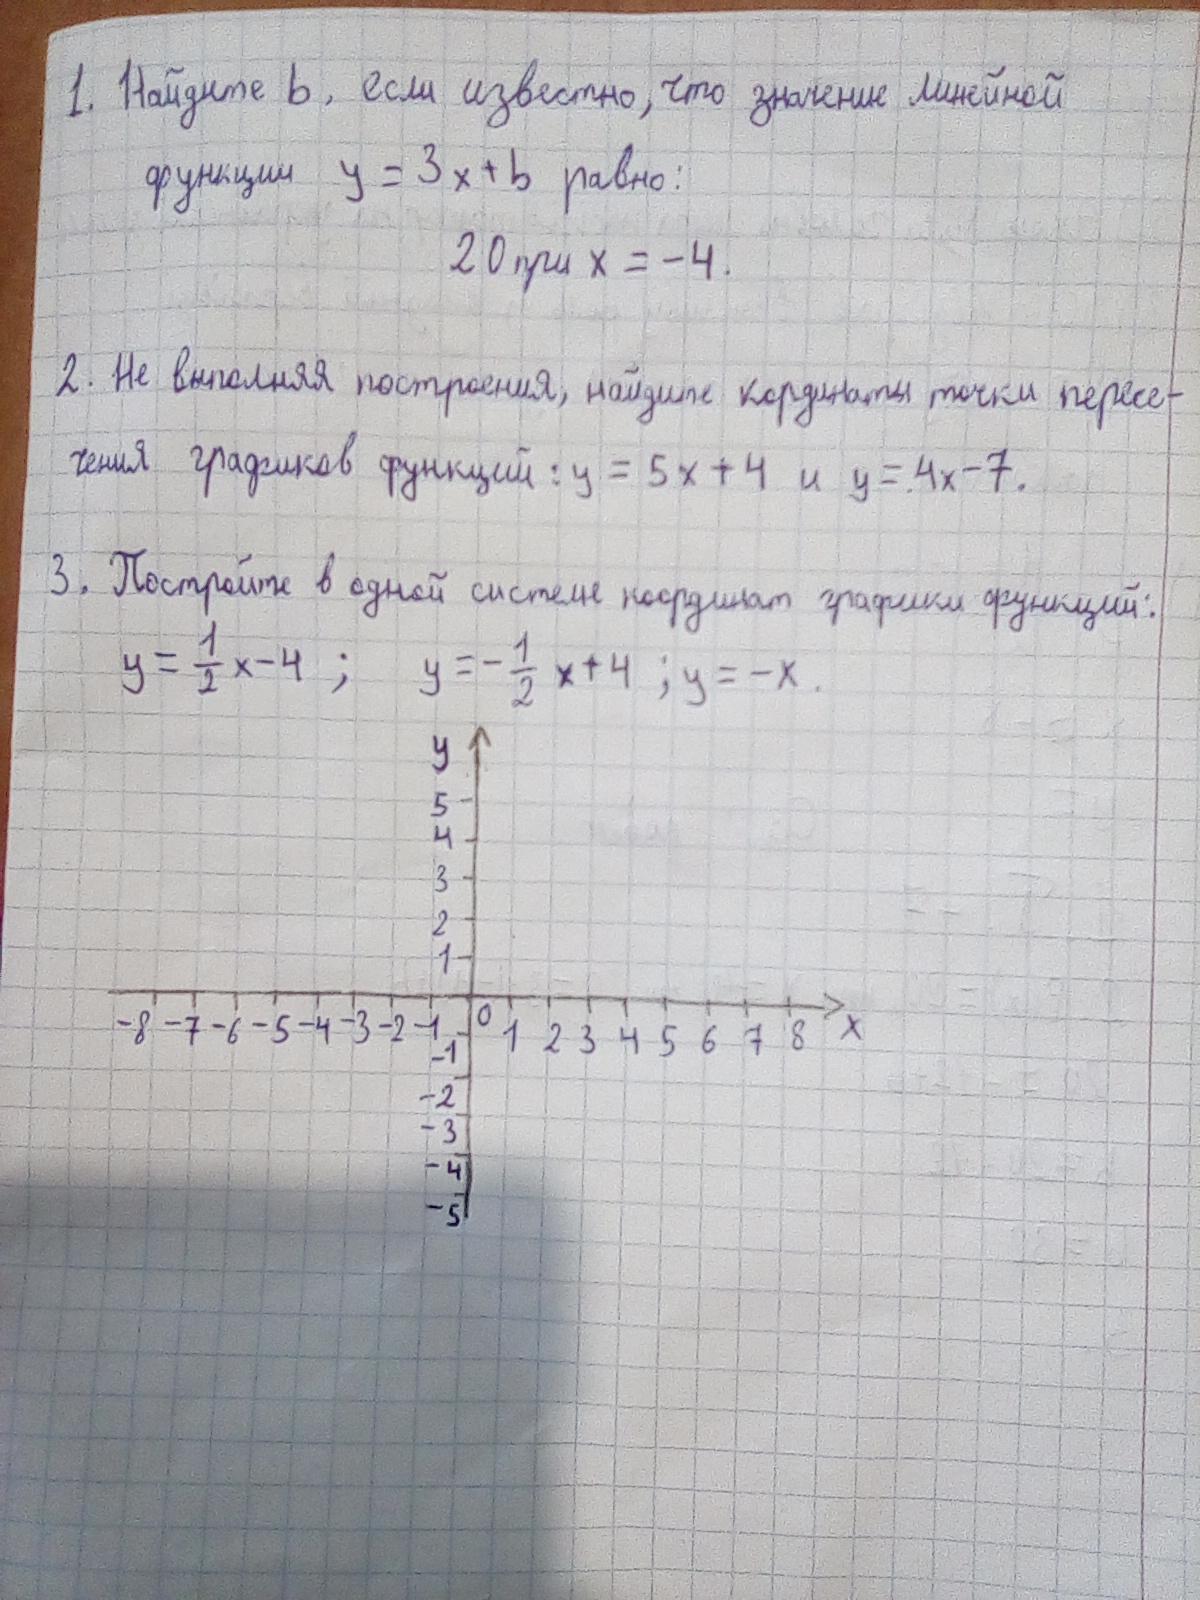 1. Найдите b, если известно, что значение линейной
функции y = 3x+b равно:
20 при x = -4.
2. Не выполняя построения, найдите кординаты точки пересе-
чения графиков функций: y = 5x+4 и y = 4x-7.
3. Постройте в одной системе координат графики функций:
y = 1/2 x-4 ; y = -1/2 x+4 ; y = -x.
y
5
4
3
2
1
-8 -7 -6 -5 -4 -3 -2 -1 0 1 2 3 4 5 6 7 8 x
-1
-2
-3
-4
-5